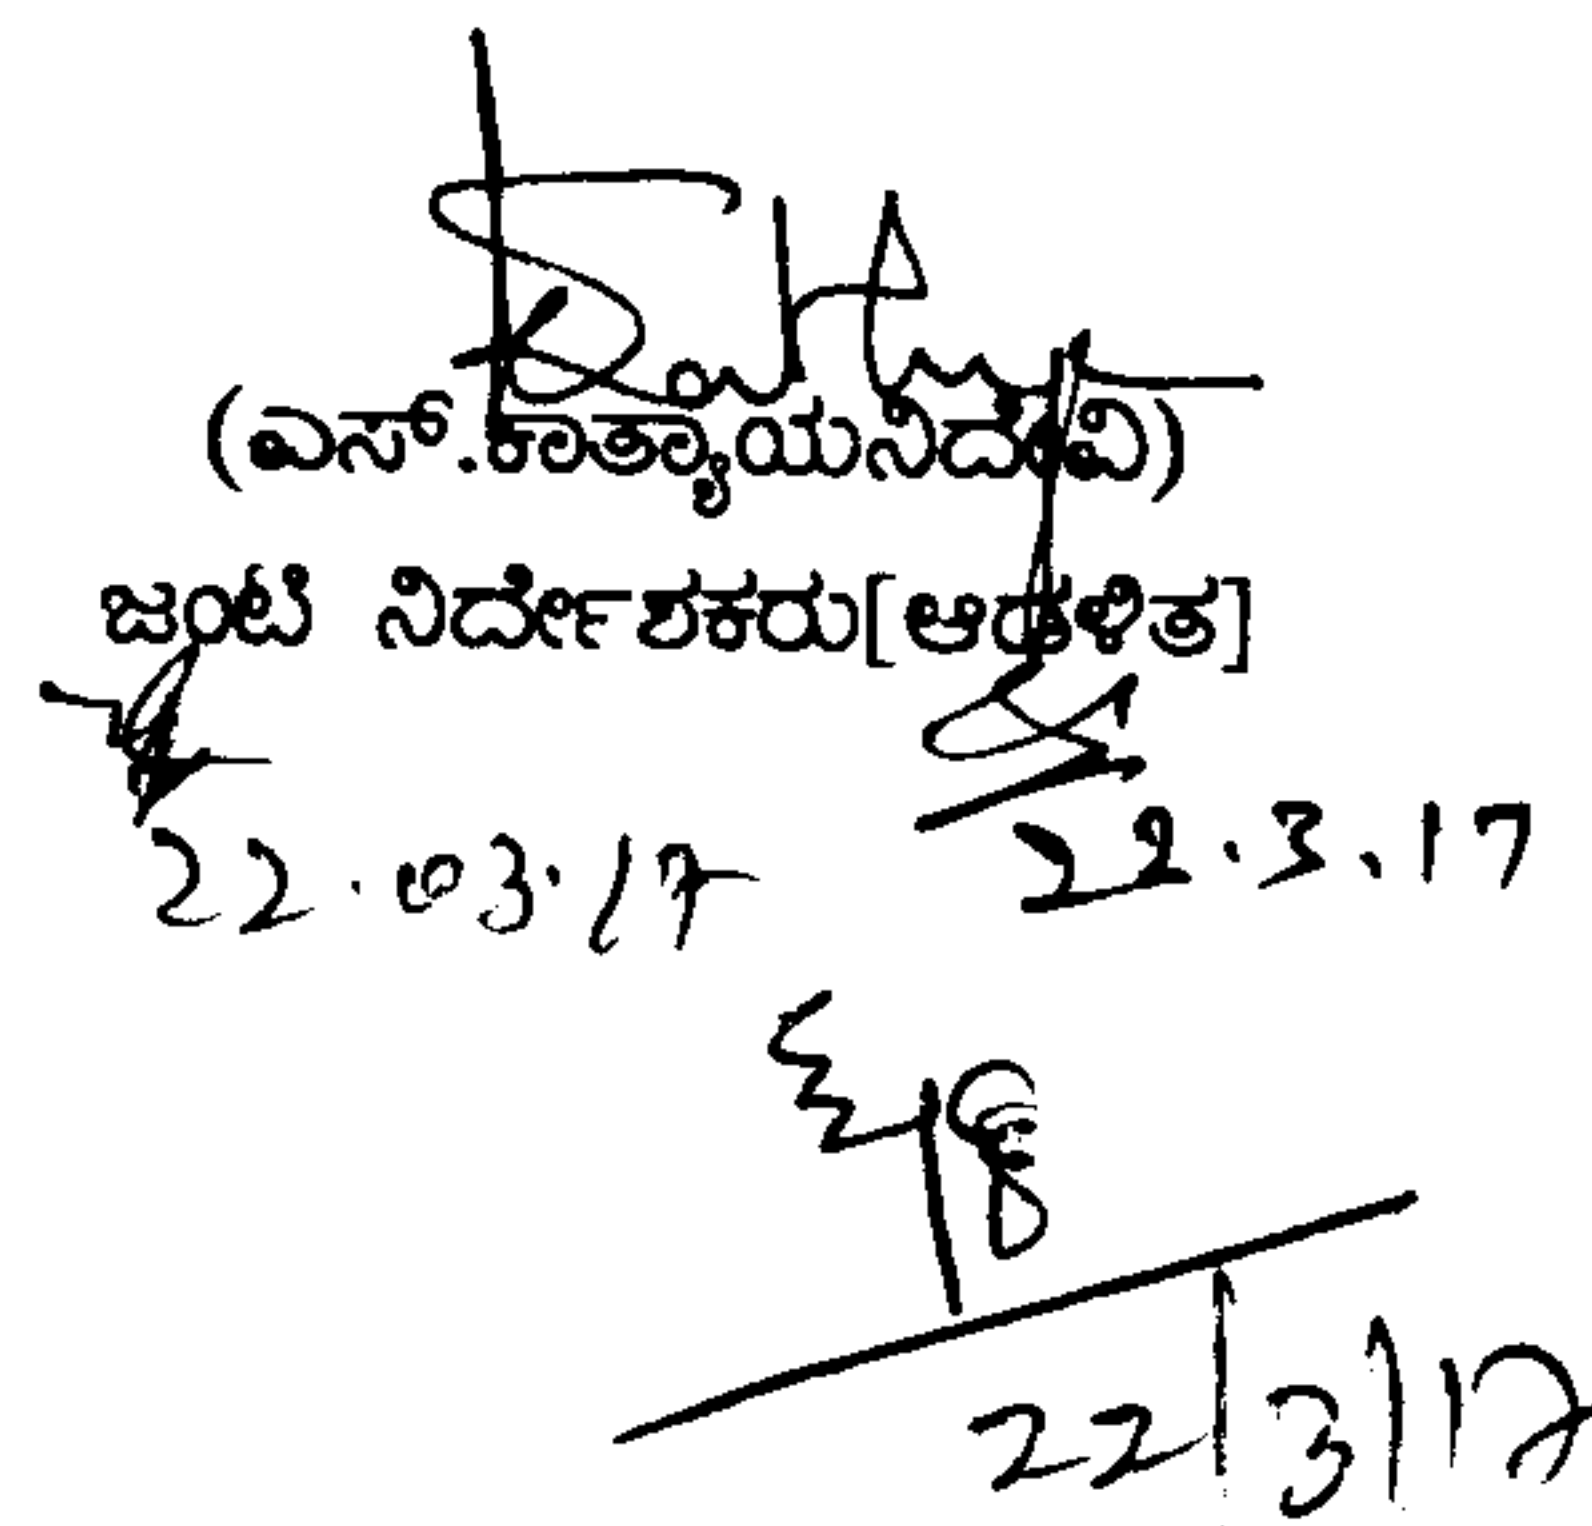 (ಎಸ್.ಕಾತ್ಯಾಯನಿದೇವಿ)
ಜಂಟಿ ನಿರ್ದೇಶಕರು[ಆಡಳಿತ]
22.03.17 22.3.17
22/3/17